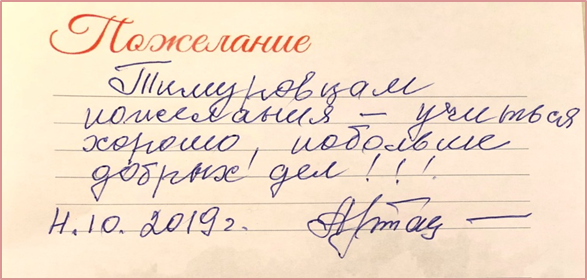 Пожелание
Тимуровцам
пожелания – учиться
хорошо, побольше
добрых дел!!!
4.10.2019г.